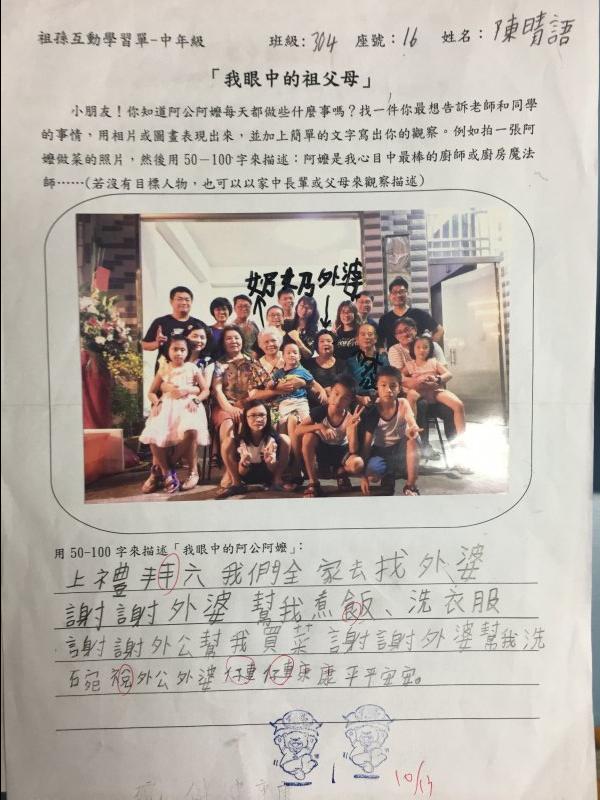 祖孫互動學習單-中年級 班級:304 座號:16 姓名:陳晴語
「我眼中的祖父母」
小朋友!你知道阿公阿嬤每天都做些什麼事嗎?找一件你最想告訴老師和同學
的事情,用相片或圖畫表現出來,並加上簡單的文字寫出你的觀察。例如拍一張阿
嬤做菜的照片,然後用50-100字來描述:阿嬤是我心目中最棒的廚師或廚房魔法
師……(若沒有目標人物,也可以以家中長輩或父母來觀察描述)
奶奶 外婆
用50-100字來描述「我眼中的阿公阿嬤」:
上禮拜六我們全家去找外婆
謝謝外婆幫我煮飯、洗衣服
謝謝外公幫我買菜謝謝外婆幫我洗
碗祝外公外婆健健康康平平安安。
10/13